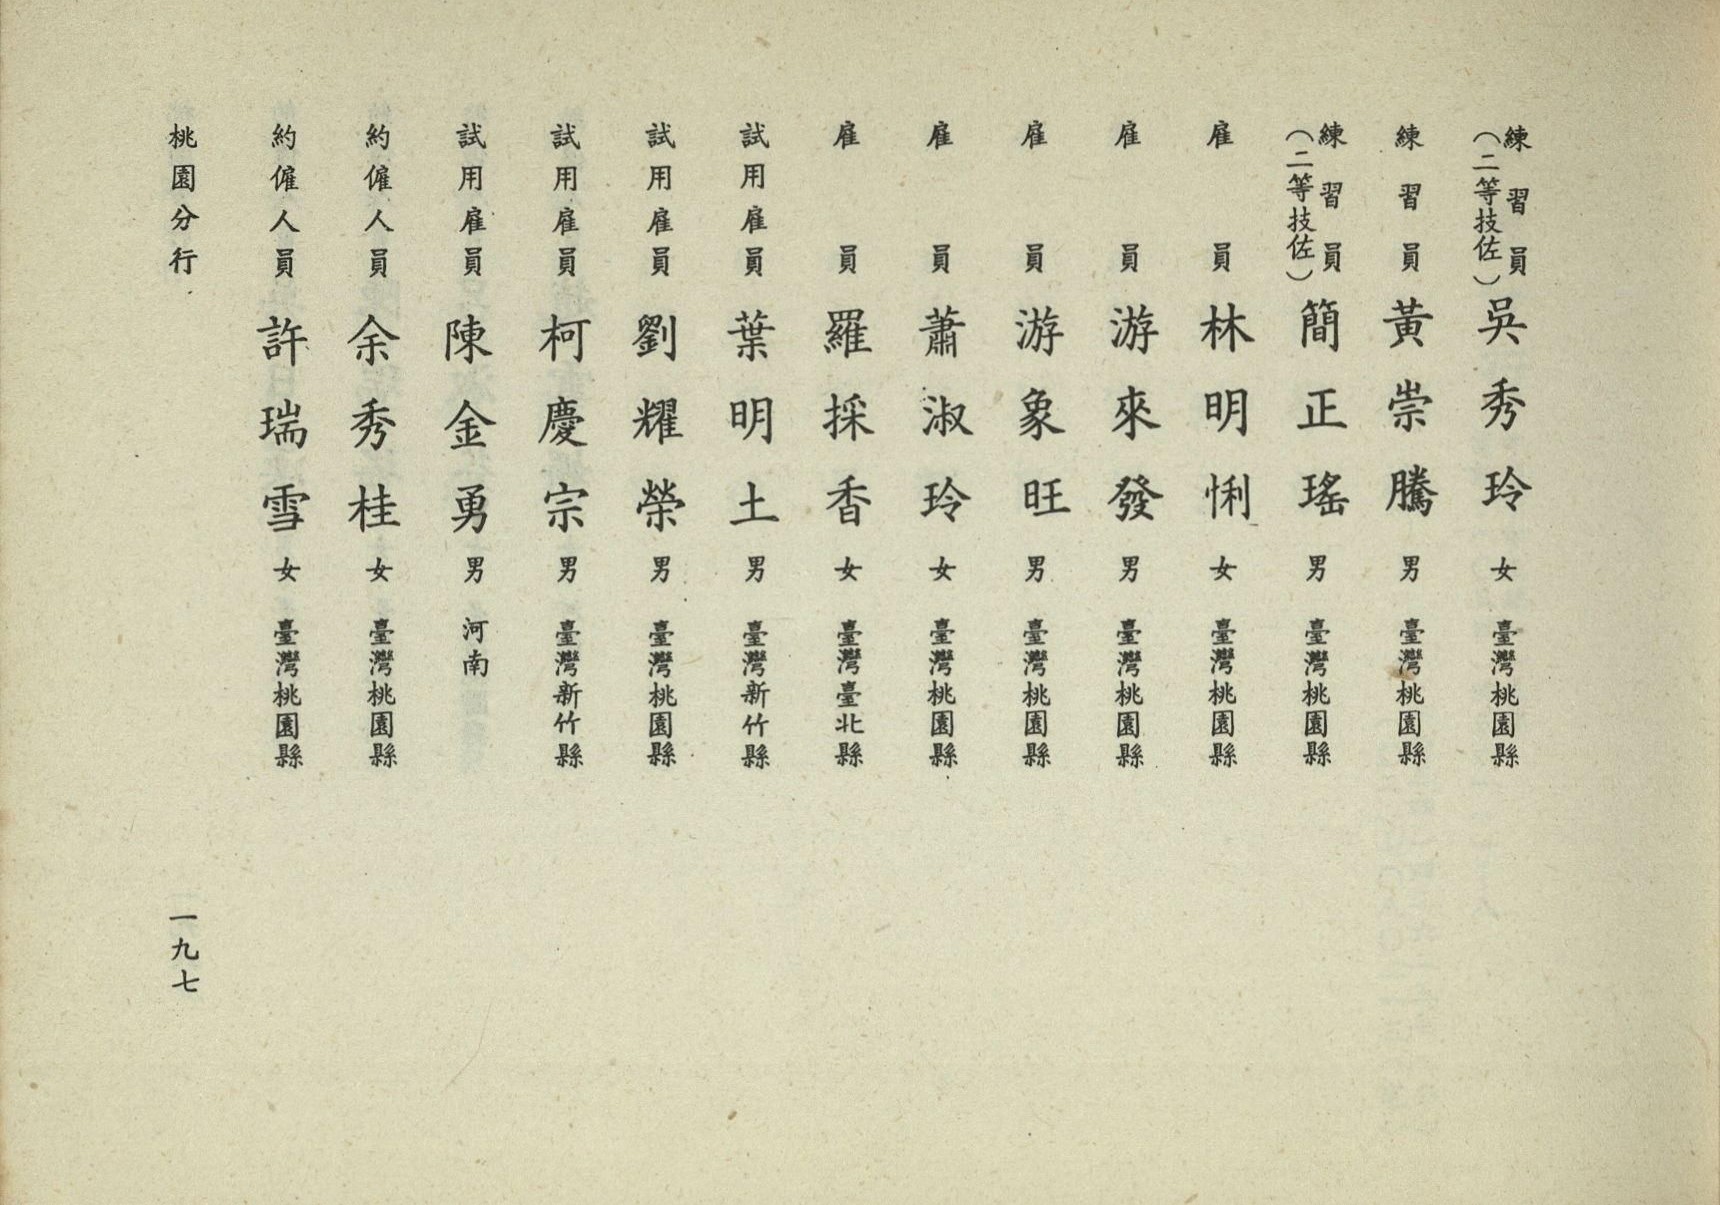 練習員（二等技佐） 吳秀玲 女 臺灣桃園縣
練習員 黃崇騰 男 臺灣桃園縣
練習員（二等技佐） 簡正瑤 男 臺灣桃園縣
雇員 林明悧 女 臺灣桃園縣
雇員 游來發 男 臺灣桃園縣
雇員 游象旺 男 臺灣桃園縣
雇員 蕭淑玲 女 臺灣桃園縣
雇員 羅採香 女 臺灣臺北縣
試用雇員 葉明土 男 臺灣新竹縣
試用雇員 劉耀榮 男 臺灣桃園縣
試用雇員 柯慶宗 男 臺灣新竹縣
試用雇員 陳金勇 男 河南
約僱人員 余秀桂 女 臺灣桃園縣
約僱人員 許瑞雪 女 臺灣桃園縣
桃園分行 一九七